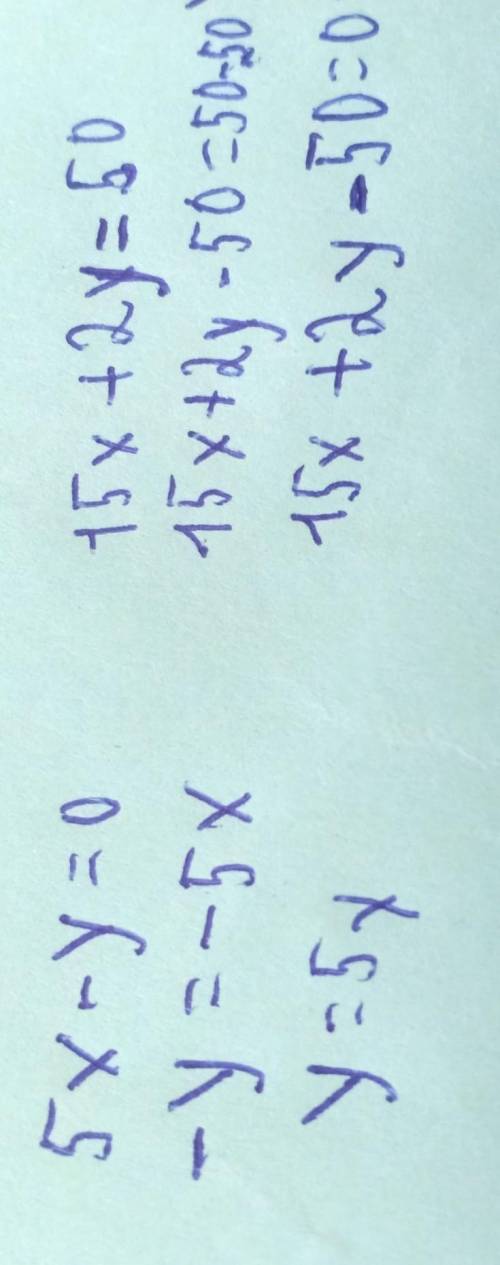 5x - y = 0
-y = -5x
y = 5x
15x + 2y = 50
15x + 2y - 50 = 50-50
15x + 2y - 50 = 0